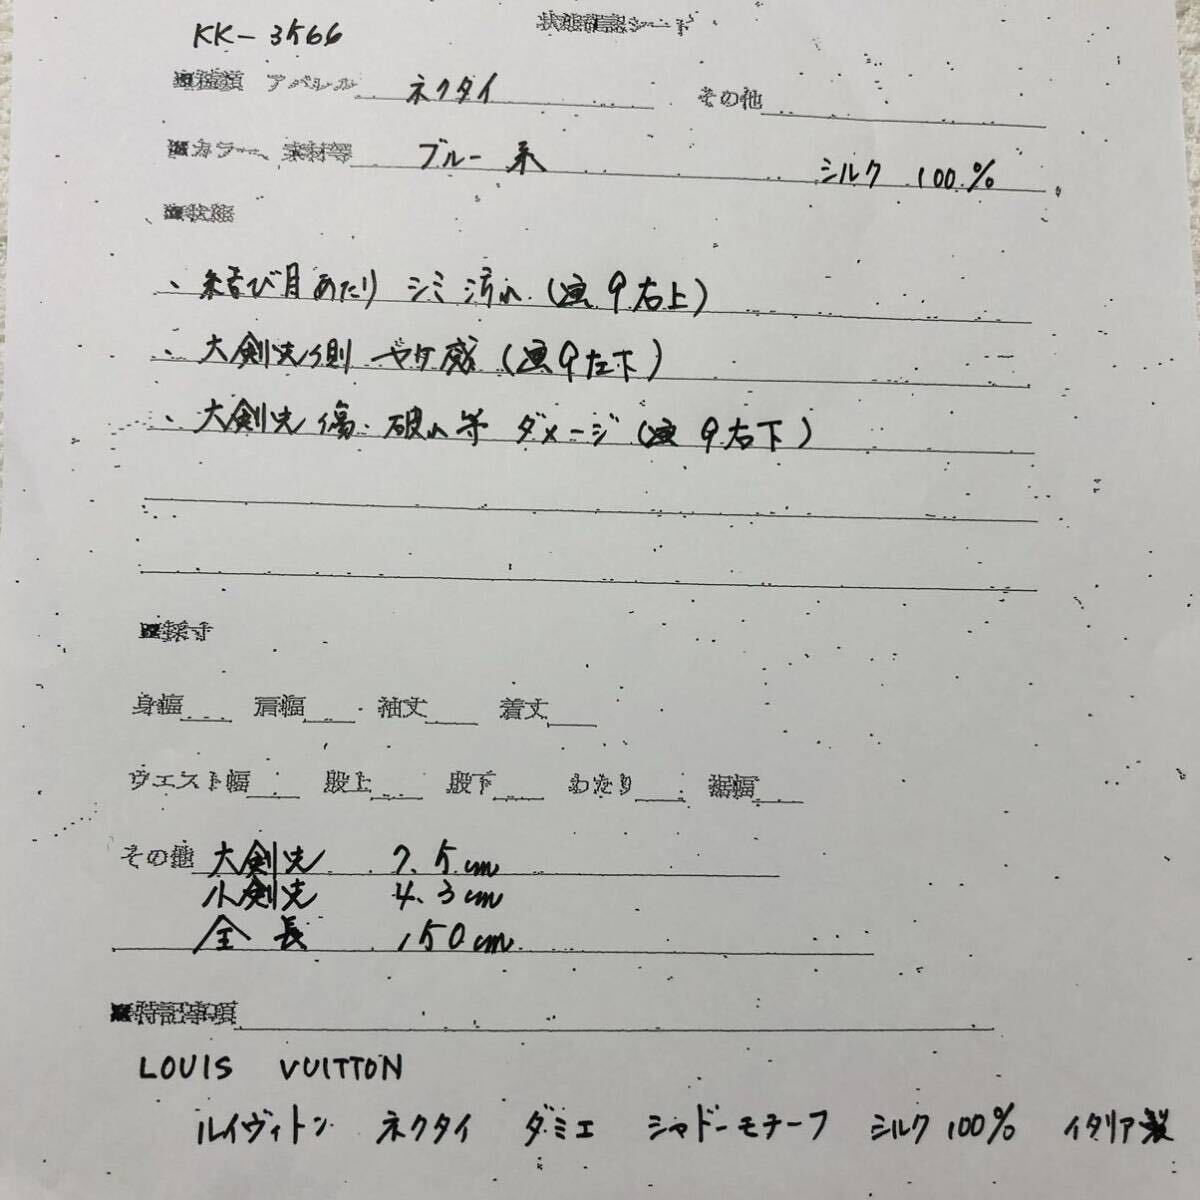 KK-3566
状態確認シート
■種類 アパレル ネクタイ その他
■カラー、素材等 ブルー系 シルク 100%
■状態
、結び目あたり シミ 汚れ (画9右上)
、大剣先側 ヤケ感 (画9左下)
、大剣先 傷、破れ等 ダメージ (画9右下)
■採寸
身幅 肩幅 袖丈 着丈
ウエスト幅 股上 股下 わたり 裾幅
その他 大剣先 7.5cm
小剣先 4.3cm
全長 150cm
■特記事項
LOUIS VUITTON
ルイヴィトン ネクタイ ダミエ シャドーモチーフ シルク100% イタリア製